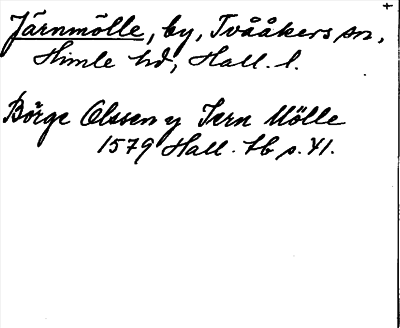 Järnmölle, by, Tvååkers sn,
Himle hd, Hall. l.
Börge Olssen y Iern Mölle
1579 Hall. tb s. 41.